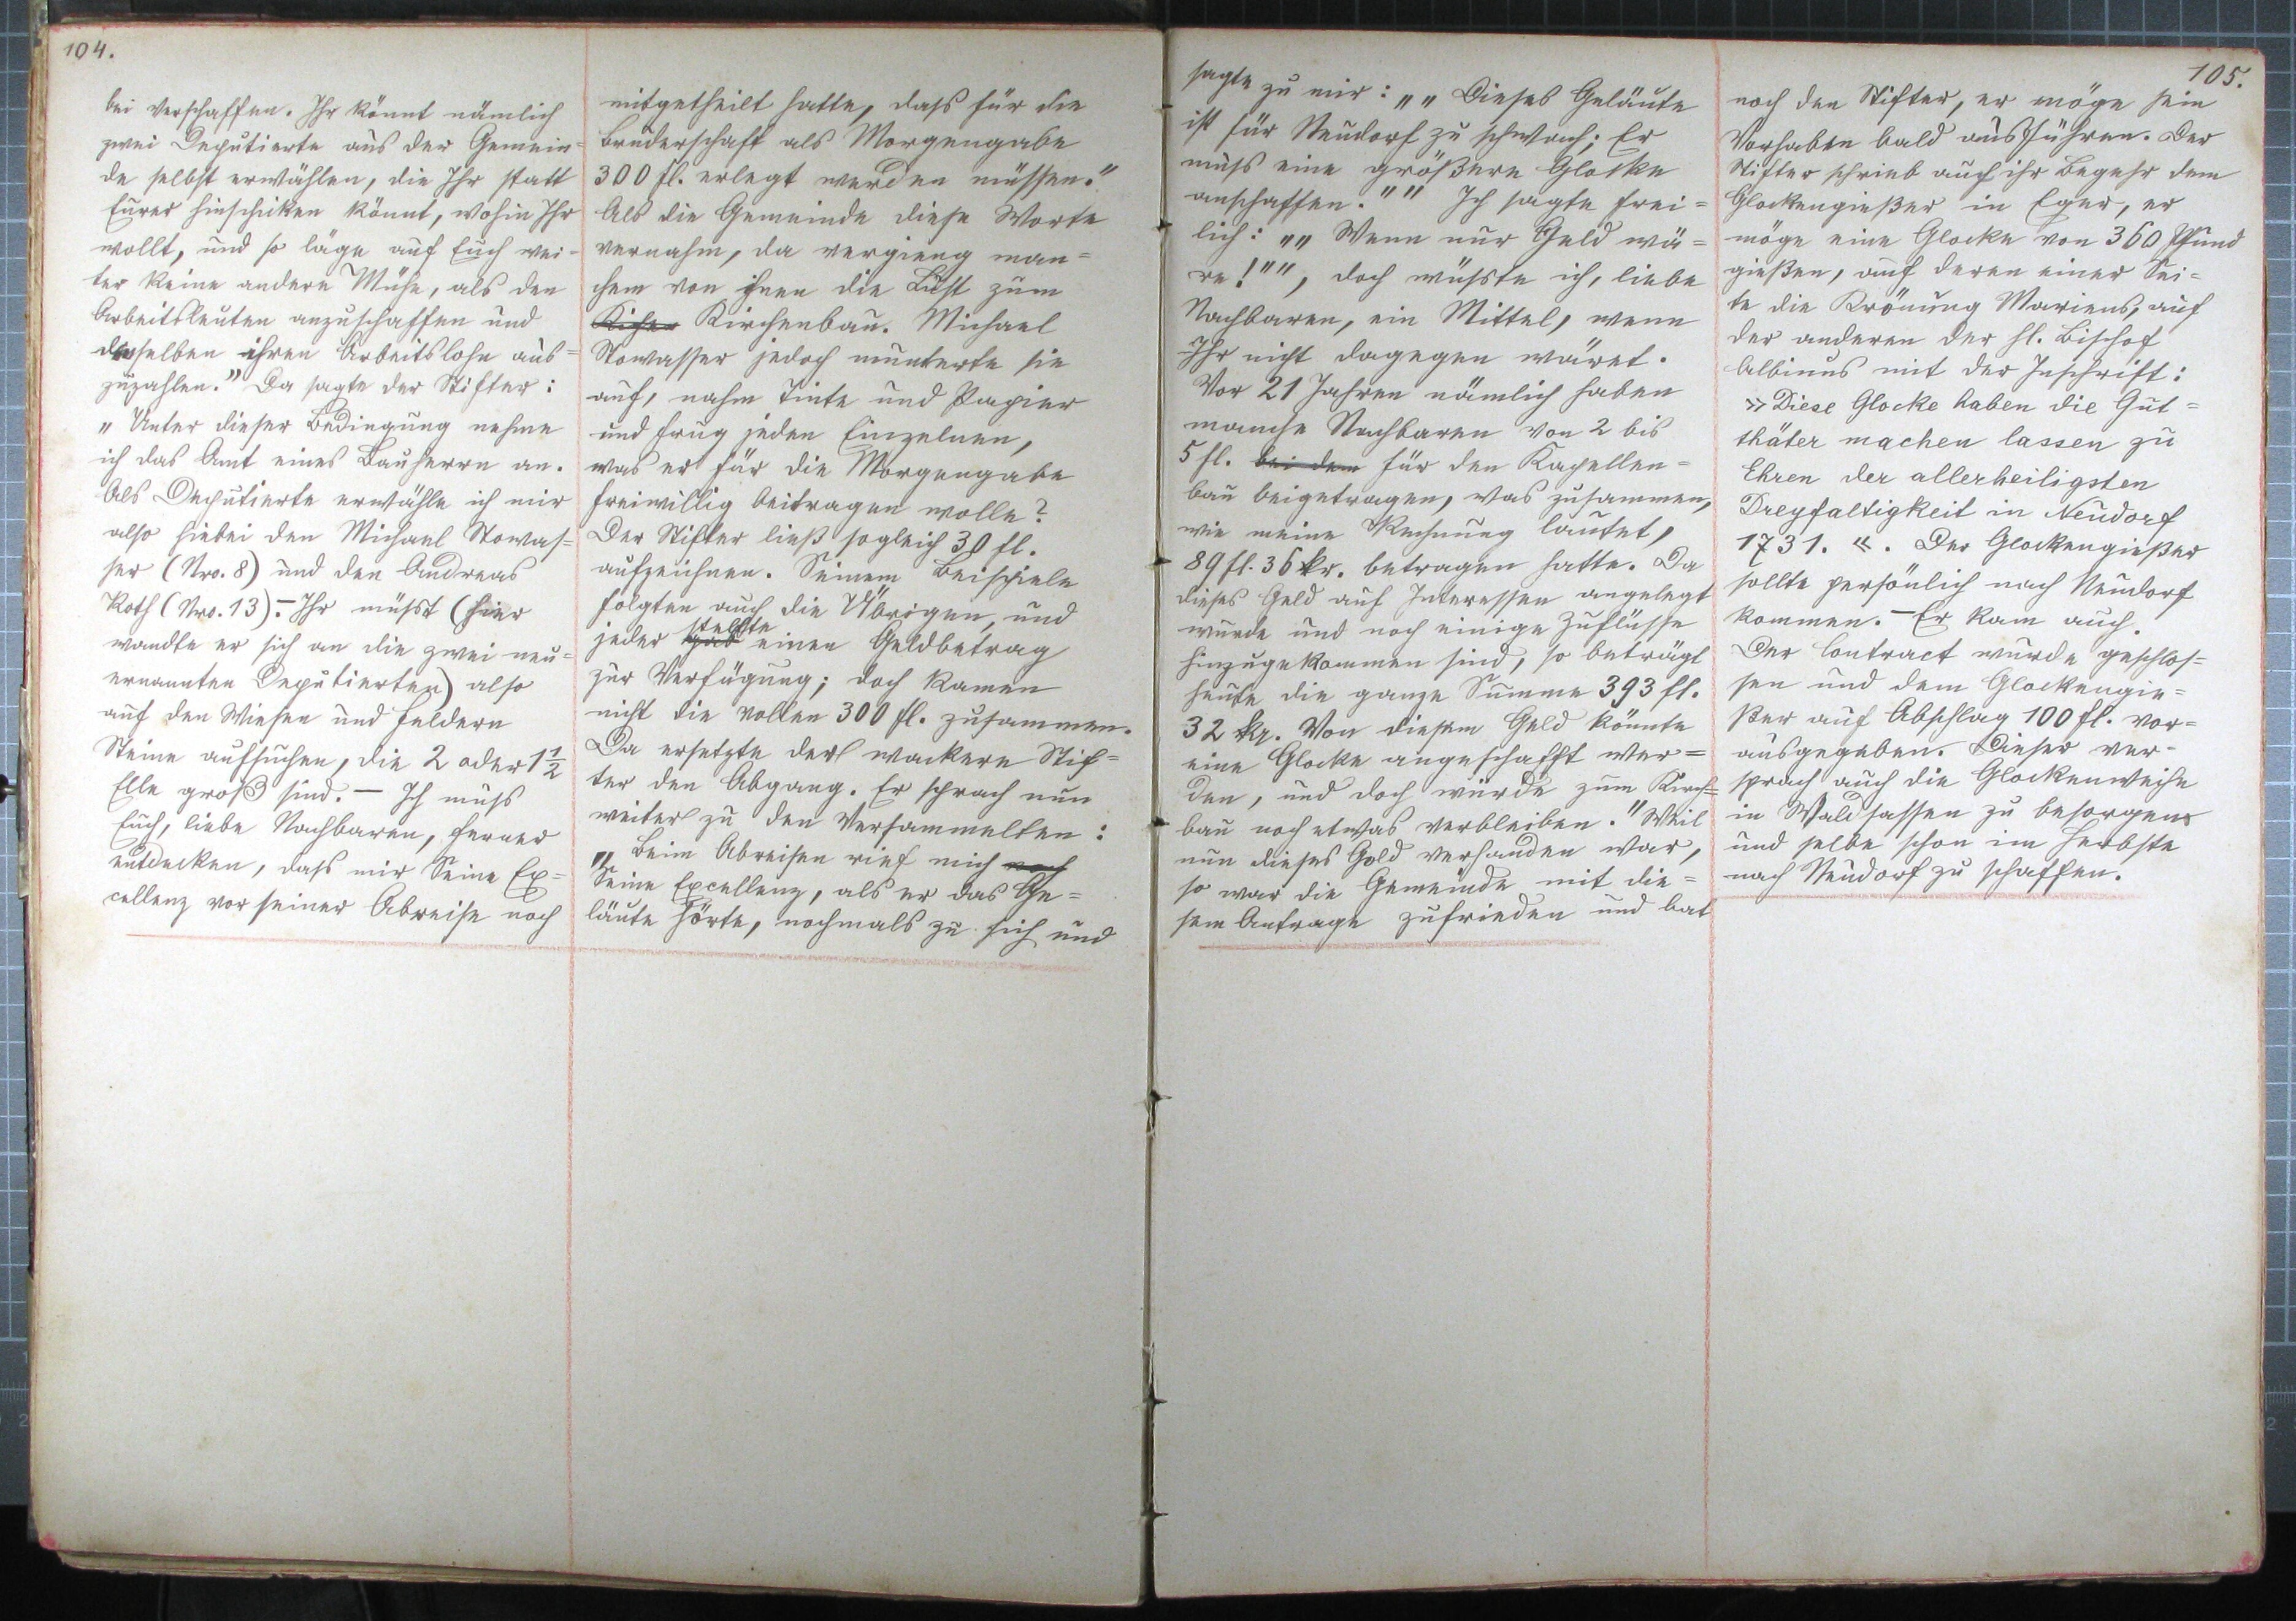 104.
bei verschaffen. Ihr könnt nämlich
zwei Deputierte aus der Gemein=
de selbst erwählen, die Ihr statt
Eurer hinschicken könnt, wohin Ihr
wollt, und so läge auf Euch wei=
ter keine andere Mühe, als den
Arbeitsleuten anzuschaffen und
denselben ihren Arbeitslohn aus=
zuzahlen." Da sagte der Stifter:
„Unter dieser Bedingung nehme
ich das Amt eines Bauherrn an.
Als Deputierte erwähle ich mir
also hiebei den Michael Stowas=
ser (Nro. 8) und den Andreas
Roth (Nro. 13). – Ihr müsst (hier
wandte er sich an die zwei neu=
ernannten Deputierten) also
auf den Wiesen und Feldern
Steine aufsuchen, die 2 oder 1 1/2
Elle groß sind. – Ich muss
Euch, liebe Nachbaren, ferner
entdecken, dass mir Seine Ex=
cellenz vor seiner Abreise noch
mitgetheilt hatte, dass für die
Bruderschaft als Morgengabe
300 fl. erlegt werden müssen."
Als die Gemeinde diese Worte
vernahm, da vergieng man=
chem von ihnen die Lust zum
Kirchenbau. Michael
Stowasser jedoch munterte sie
auf, nahm Tinte und Papier
und frug jeden Einzelnen,
was er für die Morgengabe
freiwillig beitragen wolle?
Der Stifter ließ sogleich 30 fl.
aufzeichnen. Seinem Beispiele
folgten auch die Übrigen, und
jeder gab stellte einen Geldbetrag
zur Verfügung; doch kamen
nicht die vollen 300 fl. zusammen.
Da ersetzte der wackere Stif=
ter den Abgang. Er sprach nun
weiter zu den Versammelten:
„Beim Abreisen rief mich noch
Seine Excellenz, als er das Ge=
läute hörte, nochmals zu sich und
105.
sagte zu mir: „„Dieses Geläute
ist für Neudorf zu schwach; Er
muss eine größere Glocke
anschaffen."" Ich sagte frei=
lich: „„Wenn nur Geld wä=
re!"", doch wüsste ich, liebe
Nachbaren, ein Mittel, wenn
Ihr nicht dagegen wäret.
Vor 21 Jahren nämlich haben
manche Nachbaren von 2 bis
5 fl. bei dem für den Kapellen=
bau beigetragen, was zusammen,
wie meine Rechnung lautet,
89 fl. 36 kr. betragen hatte. Da
dieses Geld auf Interessen angelegt
wurde und noch einige Zuflüsse
hinzugekommen sind, so beträgt
heute die ganze Summe 393 fl.
32 kr. Von diesem Geld könnte
eine Glocke angeschafft wer=
den, und doch würde zum Kirch=
bau noch etwas verbleiben." Weil
nun dieses Geld verhanden war,
so war die Gemeinde mit die=
sem Antrage zufrieden und bat
noch den Stifter, er möge sein
Vorhaben bald ausführen. Der
Stifter schrieb auch ihr Begehr dem
Glockengießer in Eger, er
möge eine Glocke von 360 Pfund
gießen, auf deren einer Sei=
te die Krönung Mariens, auf
der anderen der hl. Bischof
Albinus mit der Inschrift:
»Diese Glocke haben die Gut=
thäter machen lassen zu
Ehren der allerheiligsten
Dreyfaltigkeit in Neudorf
1731. «. Der Glockengießer
sollte persönlich nach Neudorf
kommen. – Er kam auch.
Der Contract wurde geschlos=
sen und dem Glockengie=
ßer auf Abschlag 100 fl. vor=
ausgegeben. Dieser ver=
sprach auch die Glockenweihe
in Waldsassen zu besorgen
und selbe schon im Herbste
nach Neudorf zu schaffen.